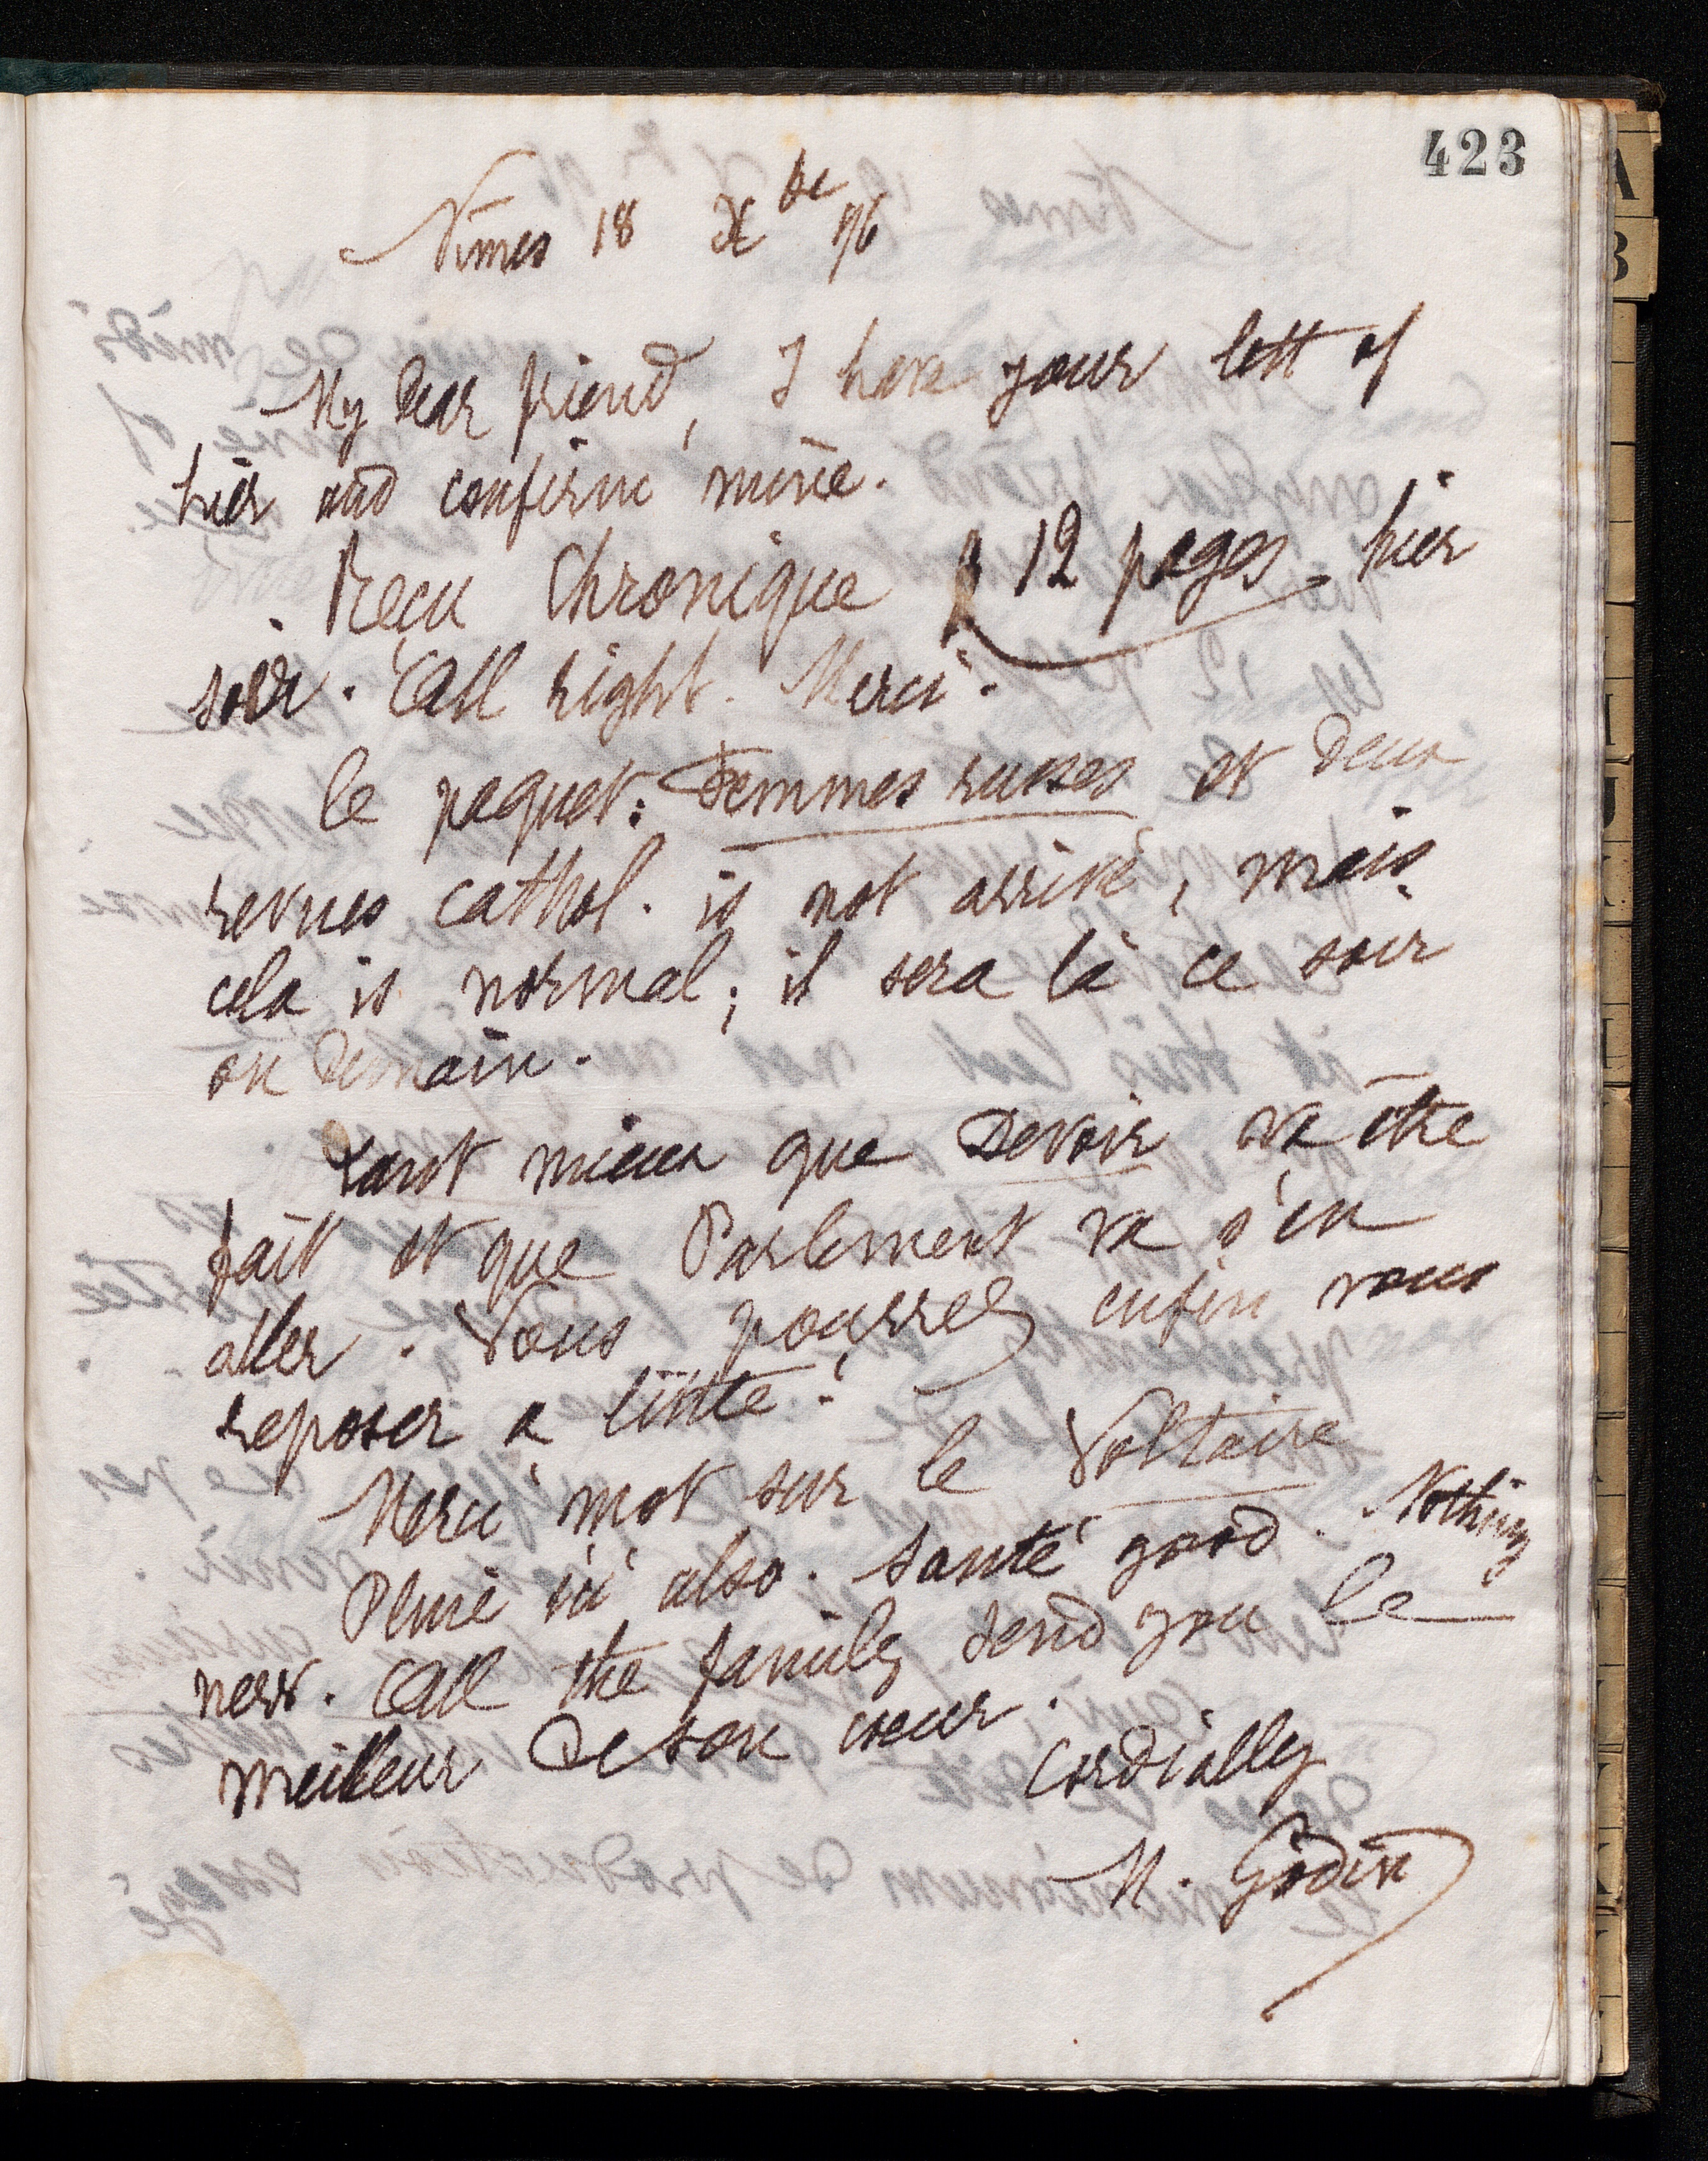 423
Nimes 18 Xbre 96
My dear friend, I have your lett of
hier and confirm mine.
Reçu Chronique 12 pages hier
soir. All right. Merci.
le paquet: Femmes russes et deux
revues cathol. is not arrivé, mais
cela is normal; il sera là ce soir
ou demain.
tant mieux que Devoir va être
fait et que Parlement va s'en
aller. Vous pourrez enfin vous
reposer a little!
Merci mot sur le Voltaire
Pluie ici also. Santé good. Nothing
new. All the family send you le
meilleur de son coeur.
Cordially
M. Godin